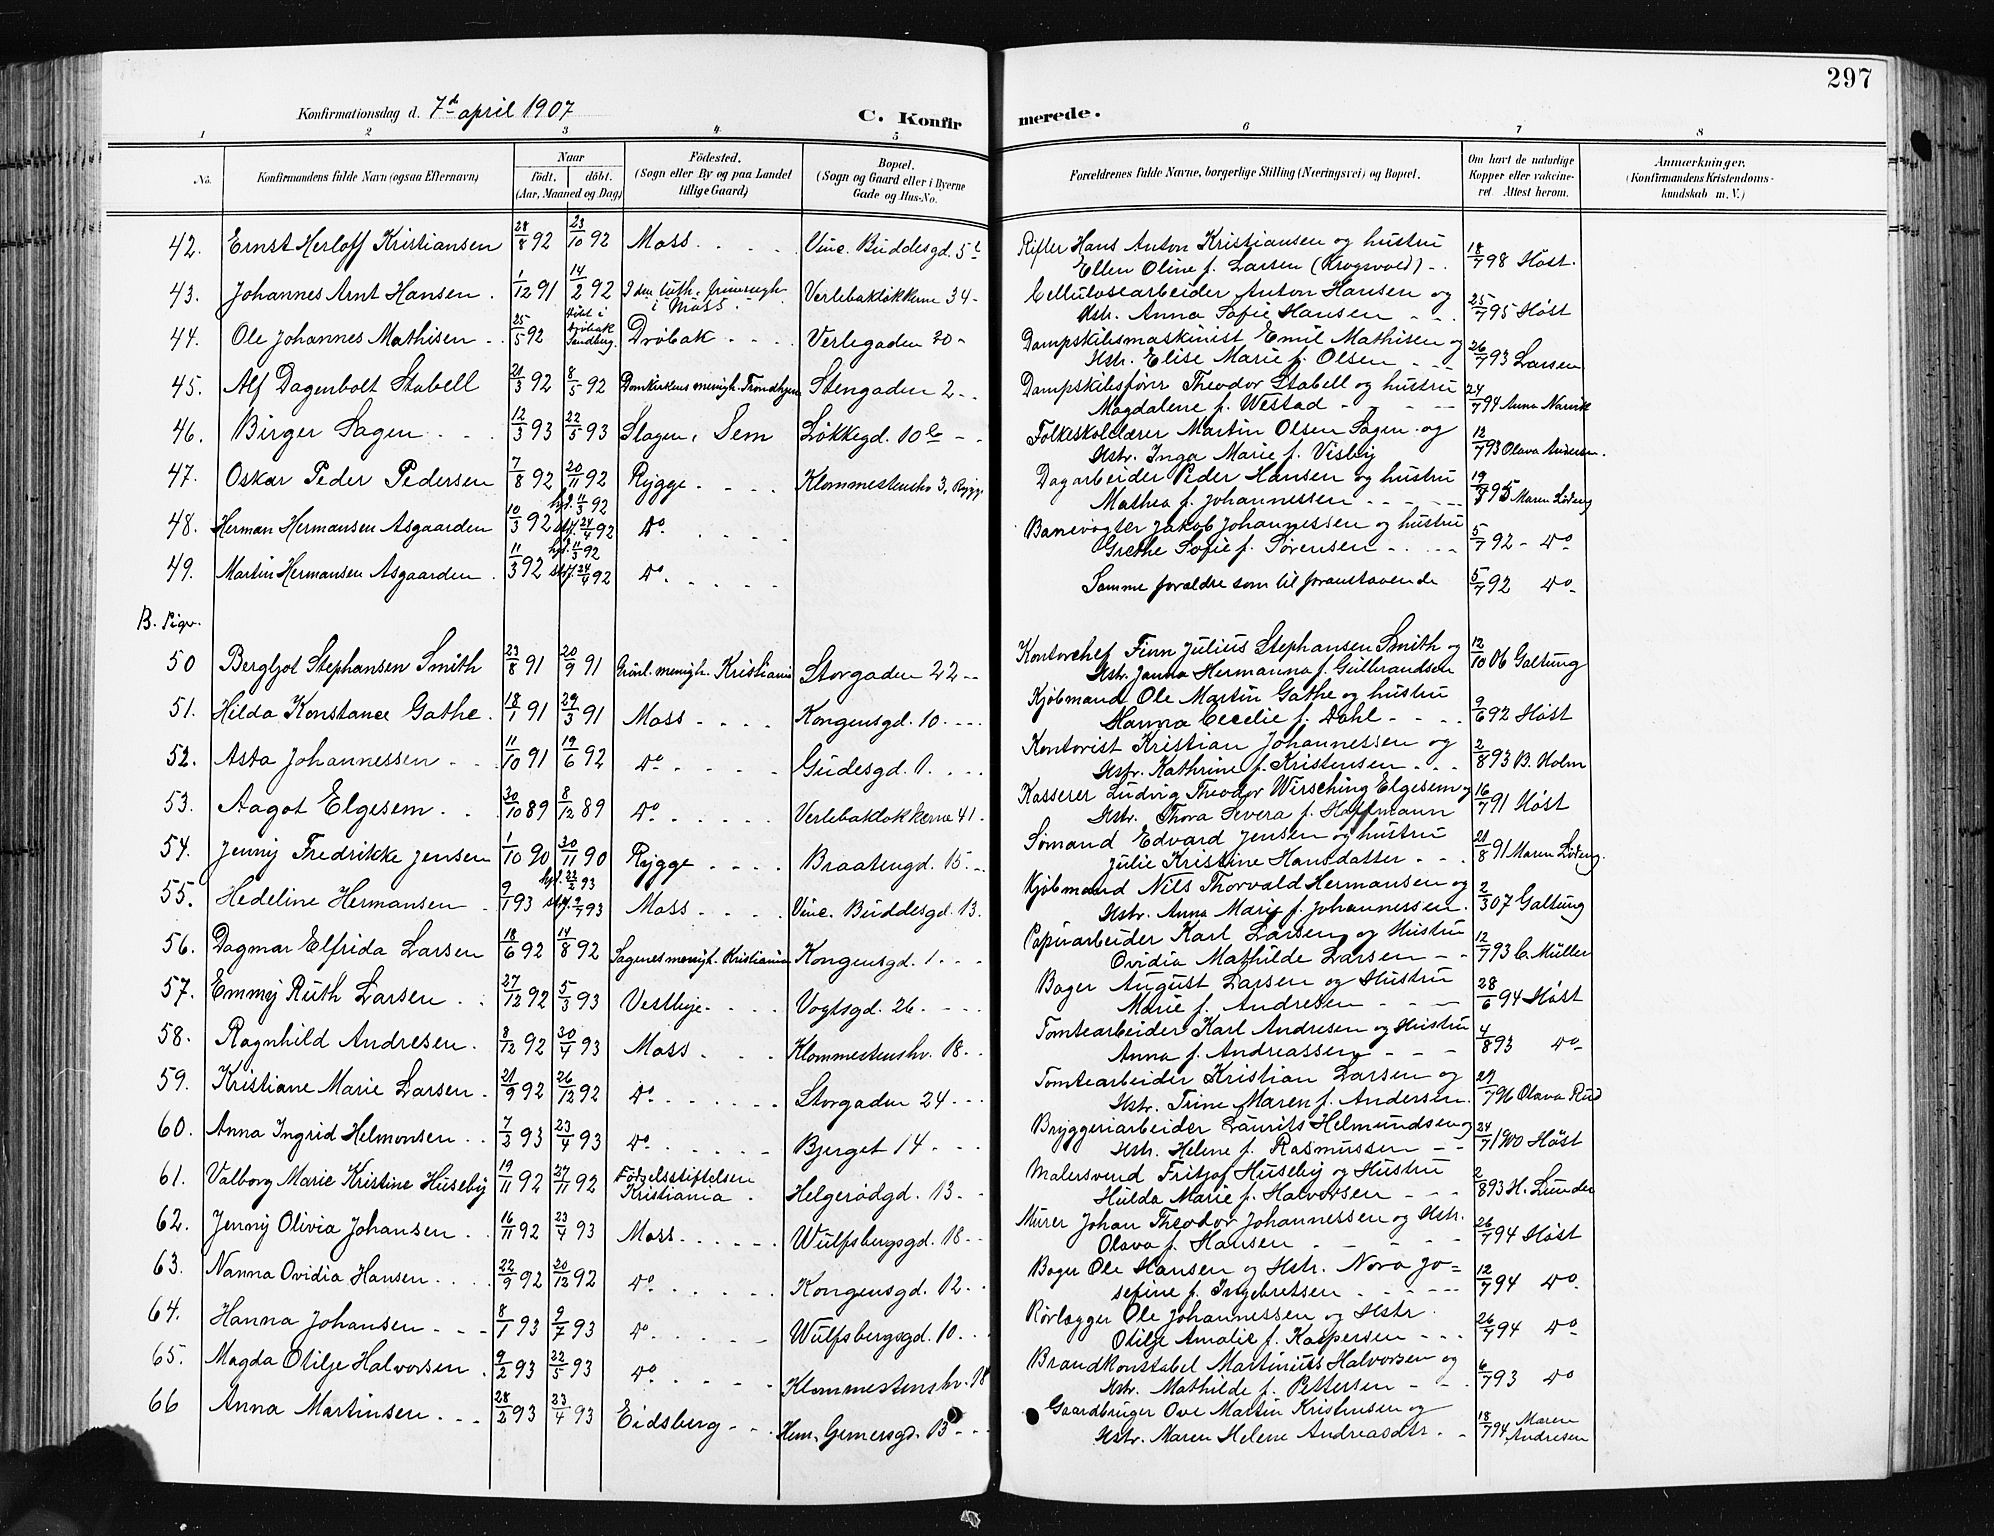 297
Konfirmationsdag d. 7d april 1907
C. Konfirmerede.
1 2 3 4 5 6 7 8
No.
Konfirmandens fulde Navn (ogsaa Efternavn)
Naar
født. døbt.
(Aar, Maaned og Dag)
Födested.
(Sogn eller By og paa Landet
tillige Gaard)
Bopæl.
(Sogn og Gaard eller i Byerne
Gade og Hus-No.
Forældrenes fulde Navne, borgerlige Stilling (Næringsvei) og Bopæl.
Om havt de naturlige
Kopper eller vakcine-
ret. Attest herom.
Anmærkninger.
(Konfirmandens Kristendoms-
kundskab m. V.)
42. Ernst Herloff Kristiansen 28/8 92 23/10 92 Moss Vinc. Buddesgd. 5 Rifler Hans Anton Kristiansen og hustru 18/7 98 Höst.
Ellen Oline f. Larsen (Krogsvold)
43. Johannes Arnt Hansen 1/12 91 14/2 92 I den luth. frimenigh. Verlebakløkkerne 34 Cellulosearbeider Anton Hansen og 25/7 95 Höst
i Moss. Hstr. Anna Sofie Hansen
44. Ole Johannes Mathisen 25/5 92 Drøbak Verlegaden 20 Dampskibsmaskinist Emil Mathisen og 26/7 93 Larsen
Hstr. Elise Marie f. Olsen
45. Alf Dagenbolt Stabell 21/3 92 8/5 92 Domkirkens menigh. Trondhjem Stengaden 2 Dampskibsfører Theodor Stabell og hustru 24/7 94 Anna Narvik
Magdalene f. Westad
46. Birger Sagen 12/3 93 22/5 93 Slagen, Sem Løkkegd. 10 Folkeskolelærer Martin Olsen Sagen og 12/7 93 Olava Andersen.
Hstr. Inga Marie f. Visby
47. Oskar Peder Pedersen 7/8 92 20/11 92 Rygge Klommestenshv 3, Rygge Dagarbeider Peder Hansen og hustru 19/8 95 Maren Löding
Mathea f. Johannessen
48. Herman Hermansen Asgaarden 10/3 92 hjd. 11/3 92 stf. 24/4 92 do Banevogter Jakob Johannessen og hustru 5/7 92 - do
Grethe Sofie f. Sørensen
49. Martin Hermansen Asgaarden 11/3 92 hjd. 11/3 92 stf. 24/4 92 do Samme forældre som til foranstaaende 5/7 92 do
B. Piger.
50 Bergljot Stephansen Smith 23/8 91 20/9 91 Grönl. menigh. Kristiania Storgaden 22 Kontorchef Finn Julius Stephansen Smith og 12/10 06 Galtung
Hstr. Janna Hermanna f. Gulbrandsen
51. Hilda Konstance Gathe 18/1 91 29/3 91 Moss Kongensgd. 10 Kjøbmand Ole Martin Gathe og hustru 9/6 92 Höst
Hanna Cecelie f. Dahl
52. Asta Johannessen 11/10 91 19/6 92 do Gudesgd. 1 Kontorist Kristian Johannessen og 2/8 93 B. Holm
Hstr. Kathrine f. Kristensen
53. Aagot Elgesem 30/10 89 8/12 89 do Verlebakløkkerne 41 Kasserer Ludvig Theodor Wirsching Elgesem og 16/7 91 Höst
Hstr. Thora Severa f. Hoffmann
54. Jenny Fredrikke Jensen 1/10 90 30/11 90 Rygge Braatengd. 15 Sømand Edvard Jensen og hustru 21/8 91 Maren Löding.
Julie Kristine Hansdatter
55. Hedeline Hermansen 9/1 93 hjd. 22/2 93 stf. 2/7 93 Moss Vinc. Buddesgd. 13. Kjøbmand Nils Thorvald Hermansen og 2/3 07 Galtung
Hstr. Anna Marie f. Johannessen
56. Dagmar Elfrida Larsen 18/6 92 14/8 92 Sagenes menigh. Kristiania Kongensgd. 1 Papirarbeider Karl Larsen og Hustru 12/7 93 C. Müller
Ovidia Mathilde Larsen
57. Emmy Ruth Larsen 27/12 92 5/3 93 Vestbye Vogtsgd. 26 Bager August Larsen og Hustru 28/6 94 Höst
Marie f. Andresen
58. Ragnhild Andresen 8/12 92 30/4 93 Moss Klommestenshv. 18 Tomtearbeider Karl Andresen og Hustru 4/8 93 do
Anna f. Andreassen
59. Kristiane Marie Larsen 21/9 92 26/12 92 do Storgaden 24 Tomtearbeider Kristian Larsen og 29/7 96 Olava Rud
Hstr. Trine Maren f. Andersen
60. Anna Ingrid Helmonsen 7/2 93 23/4 93 do Bjerget 14 Bryggeriarbeider Laurits Helmundsen og 24/7 1900 Höst
Hstr. Helene f. Rasmussen
61. Valborg Marie Kristine Huseby 19/11 92 27/11 92 Födselsstiftelsen Helgerödgd. 13 Malersvend Fritjof Huseby og Hustru 2/8 93 H. Lunder
Kristiania Hulda Marie f. Halvorsen
62. Jenny Olivia Johansen 16/11 92 23/4 93 Moss Wulfsbergsgd. 18 Murer Johan Theodor Johannessen og Hstr. 26/7 94 Höst
Olava f. Hansen
63. Nanna Ovidia Hansen 22/9 92 20/12 92 do Kongensgd. 12 Bager Ole Hansen og Hstr. Nora Jo= 12/7 94 do
sefine f. Ingebretsen
64. Hanna Johansen 8/1 93 9/7 93 do Wulfsbergsgd. 10 Rørlægger Ole Johannessen og Hstr. 26/7 94 do
Otilje Amalie f. Kaspersen
65. Magda Otilje Halvorsen 9/2 93 22/5 93 do Klommestenshv. 18 Brandkonstabel Martinius Halvorsen og 6/7 93 do
Hstr. Mathilde f. Pettersen
66 Anna Martinsen 28/2 93 23/4 93 Eidsberg Hem. Gernersgd. 13 Gaardbruger Ove Martin Kristensen og 18/7 94 Maren Andresen
Hstr. Maren Helene Andreasdtr.